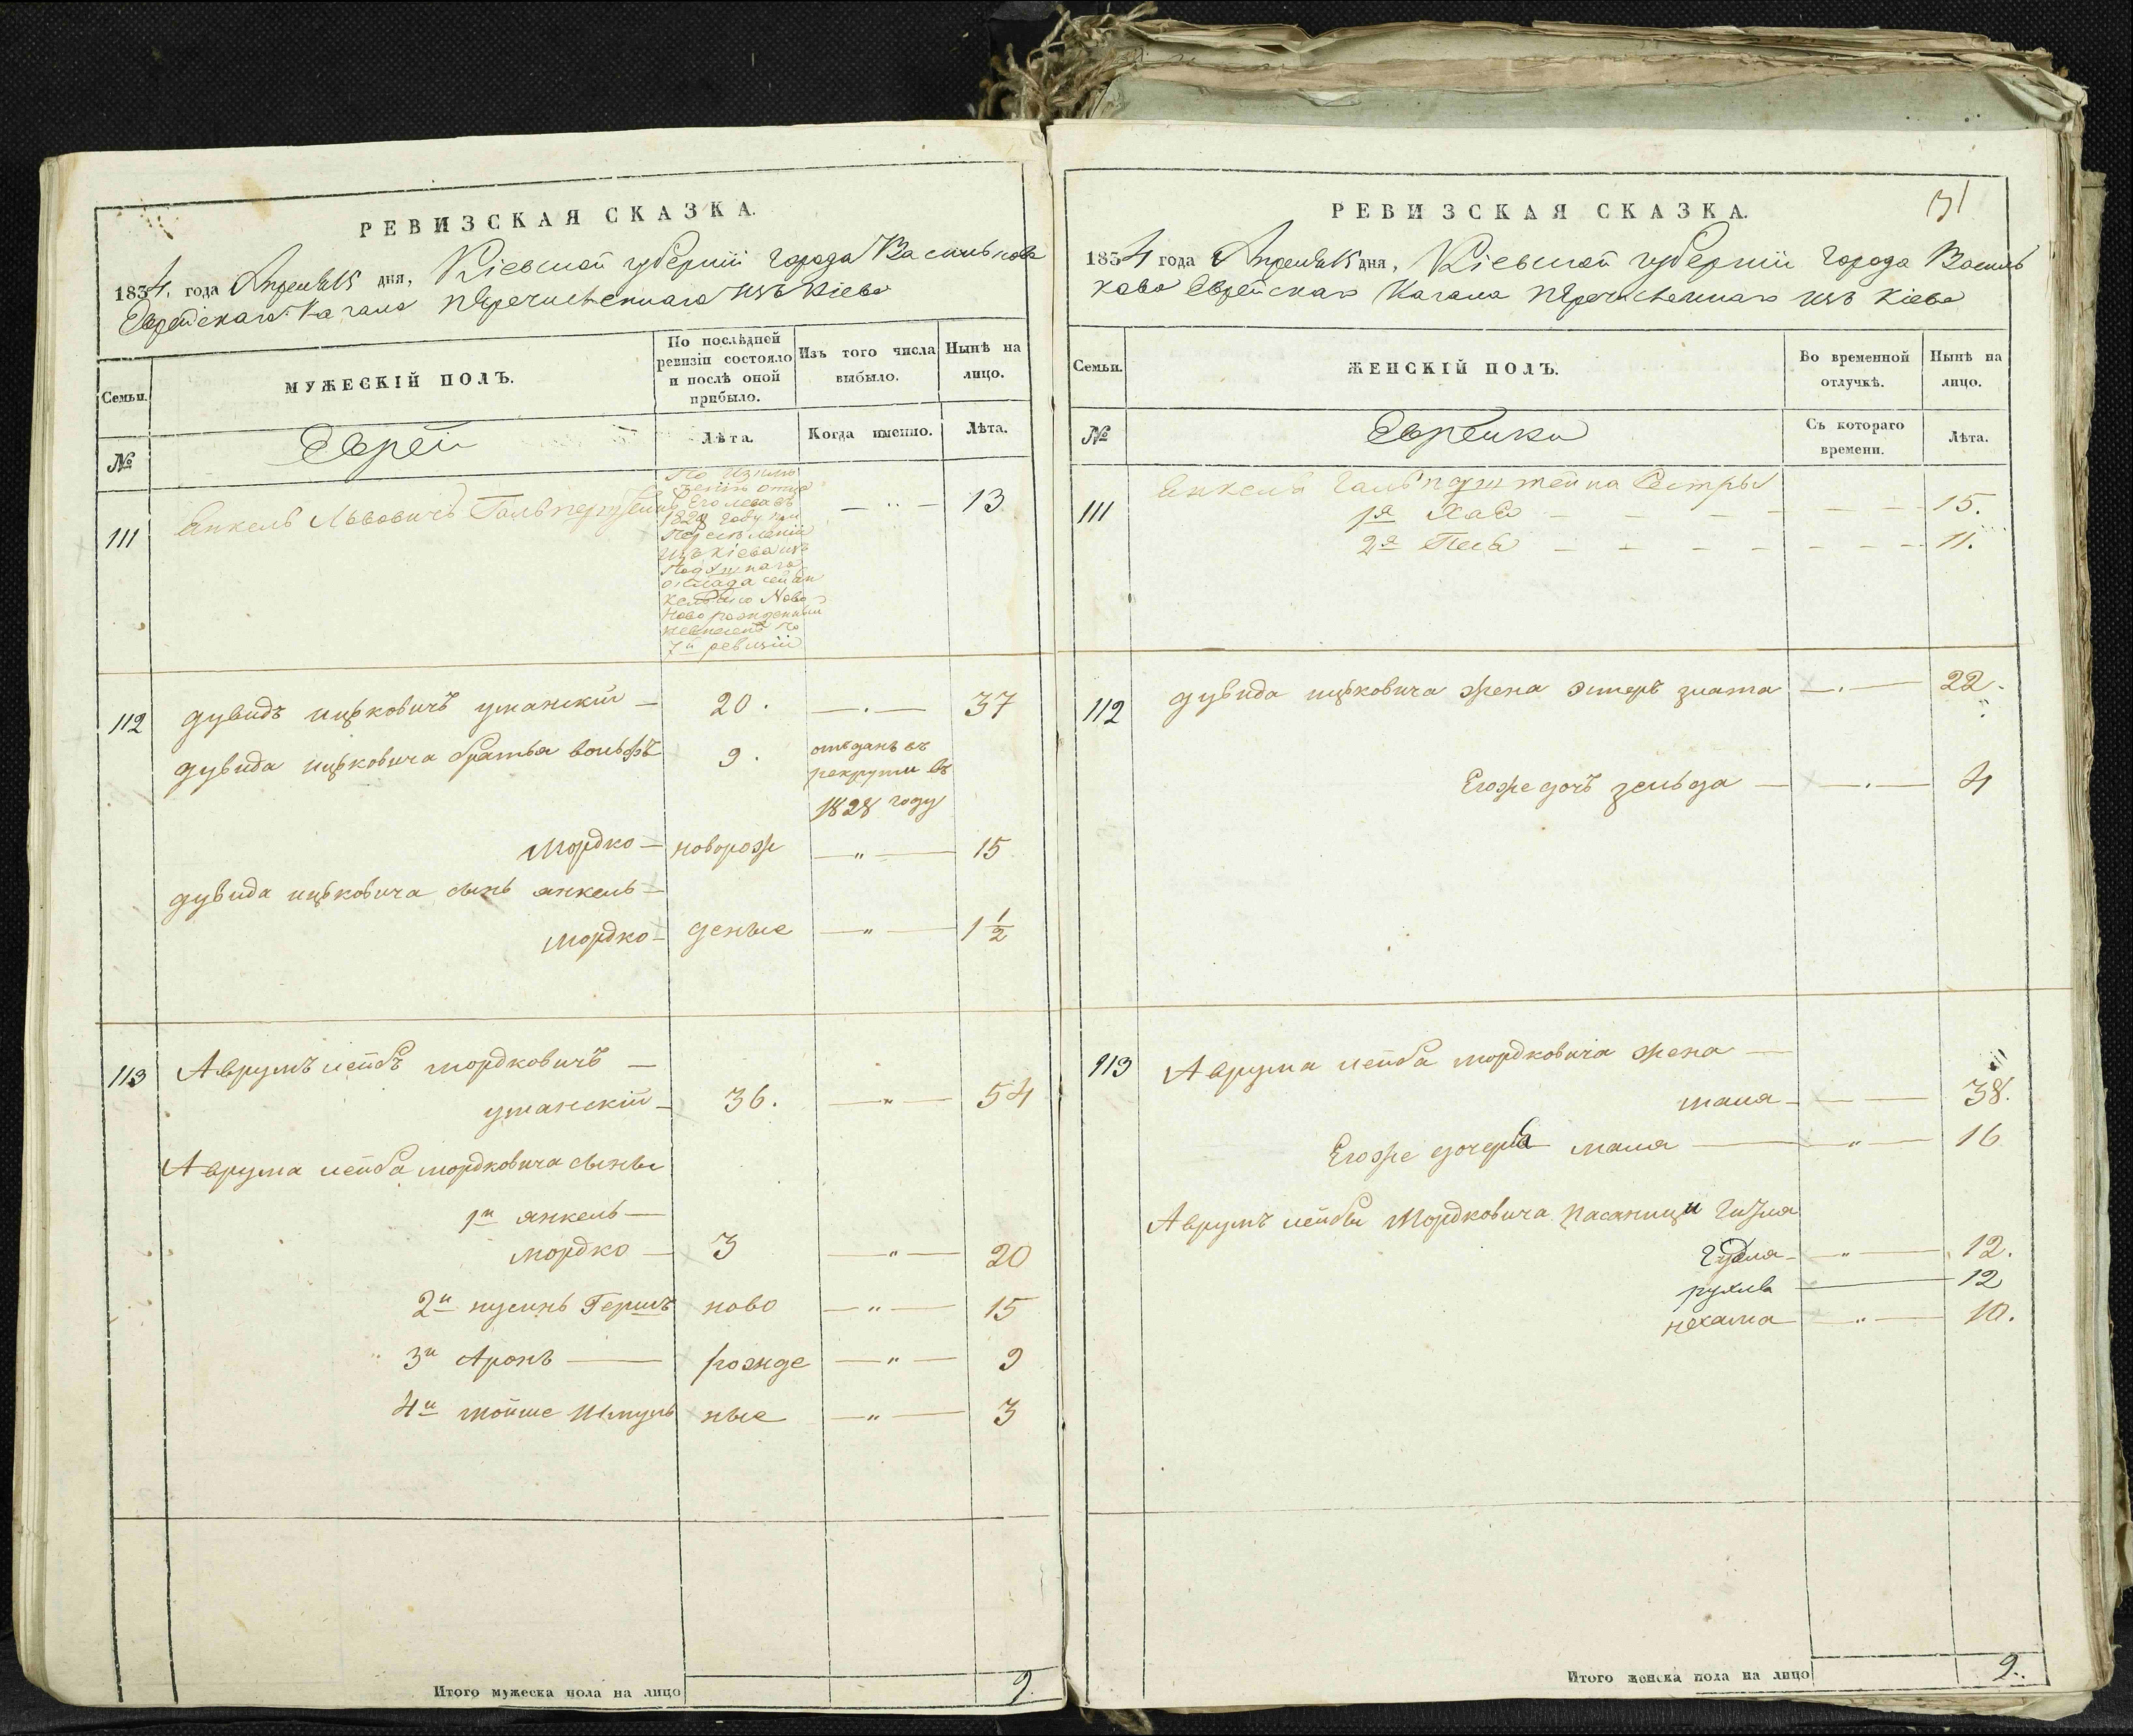 РЕВИЗСКАЯ СКАЗКА.
1834 года Апреля 15 дня, Кіевской губерніи города Василькова
Еврейскаго Кагала перечисленнаго изъ Кіева
Семьи.
МУЖЕСКІЙ ПОЛЪ.
По послѣдней ревизіи состояло и послѣ оной прибыло.
Изъ того числа выбыло.
Нынѣ на лицо.
№
Еврей
Лѣта.
Когда именно.
Лѣта.
111 Янкель Львовичъ — 13
Его Лева въ
182 году при
изъ Кіева изъ
оклада сей Ян
кель Ново
новорожденный
по
7й ревизіи
112 дувидъ ицковичъ уманскій — 20. — . — 37
дувида ицковича братья вольфъ 9. отъданъ въ
рекруты въ
1828 году
Мордко — новорож — " — 15
дувида ицковича сынъ янкель —
мордко — деные — " — 1 1/2
113 Аврумъ лейбъ мордковичъ —
уманскій — 36. — " — 54
Аврума лейба мордковича сыны
1й янкель —
мордко — 3 — " — 20
2й нусинъ Гершъ ново — " — 15
3й Аронъ — рожде — " — 9
4й мойше Шмуль ные — " — 3
Итого мужеска пола на лицо 9.
РЕВИЗСКАЯ СКАЗКА.
31
1834 года Апреля 15 дня, Кіевской губерніи города Василь
кова Еврейскаго Кагала перечисленнаго изъ Кіева
Семьи.
ЖЕНСКІЙ ПОЛЪ.
Во временной отлучкѣ.
Нынѣ на лицо.
№
Еврейки
Съ котораго времени.
Лѣта.
111 Янкеля Сестры
1я Хая — 15.
2я Песя — 11.
112 дувида ицковича жена эстеръ злата — . — 22.
Егоже дочъ зельда — . — 4
113 Аврума лейба мордковича жена —
маля — 38.
Егоже дочерья маля — " — 16
Аврумъ лейбы Мордковича
— " — 12.
рухля — 12
нехама — " — 10.
Итого женска пола на лицо 9.